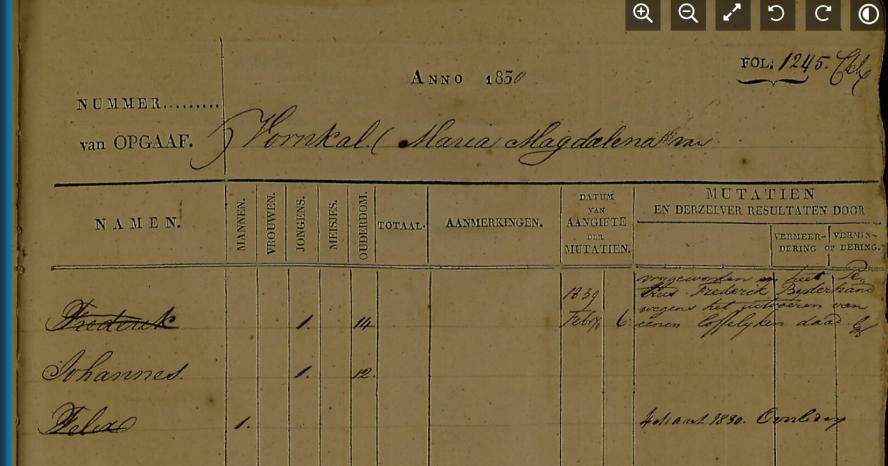 ANNO 1830
FOL. 1245.
NUMMER.........
van OPGAAF.
Vornkal ( Maria Magdalena van
NAMEN.
MANNEN.
VROUWEN.
JONGENS.
MEISJES.
OUDERDOM.
TOTAAL.
AANMERKINGEN.
DATUM
VAN
AANGIFTE
DER
MUTATIEN.
MUTATIEN
EN DERZELVER RESULTATEN DOOR
VERMEER-
DERING
OF
VERMIN-
DERING.
Frederik 1. 14 1839 Febr. 6
vrygeworden en heet
Frederik
wegens het uitvoeren van
eenen loffelyken daad
Johannes. 1. 12.
Felix 1. 4 Maart 1830. Overleden